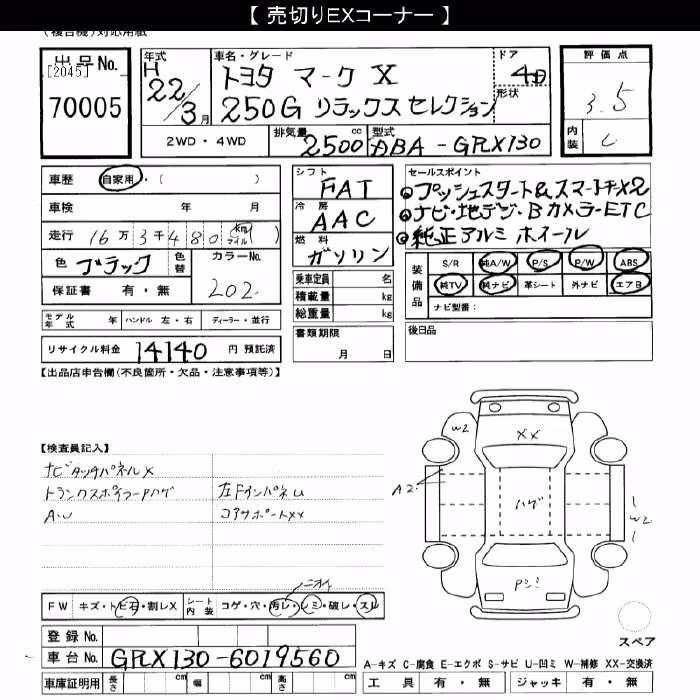 【 売切りEXコーナー 】
(複合機)対応用紙
出品No. [2045] 70005
年式 H 22/3月
車名・グレード トヨタ マークX 250G リラックスセレクション
ドア 4D 形状
評価点 3.5
内装 C
2WD・4WD 排気量 2500cc 型式 DBA-GRX130
車歴 自家用・( )
車検 年 月
走行 16万3千480 km マイル ( )
色 ブラック 色替 カラーNo. 202
保証書 有・無
シフト FAT
冷房 AAC
燃料 ガソリン
乗車定員 名
積載量 kg
総重量 kg
書類期限 月 日
セールスポイント
プッシュスタート&スマートキーX2
ナビ・地デジ・Bカメラ・ETC
純正アルミホイール
装備品 S/R 純A/W P/S P/W ABS
純TV 純ナビ 革シート 外ナビ エアB
ナビ型番:
モデル年式 年 ハンドル 左・右 ディーラー・並行
後日品
リサイクル料金 14140 円 預託済
【出品店申告欄(不良箇所・欠品・注意事項等)】
【検査員記入】
ナビタッチパネルX
トランクスポイラーPハゲ 左FインパネU
A・U コアサポートXX
W2 XX
A2 ハゲ W2
Pシミ
ニオイ
FW キズ・トビ石・割レX シート内装 コゲ・穴・汚レ・シミ・破レ・スレ
スペア
登録No.
車台No. GRX130-6019560
A-キズ C-腐食 E-エクボ S-サビ U-凹ミ W-補修 XX-交換済
車庫証明用 長さ cm 幅 cm 高さ cm 工具 有・無 ジャッキ 有・無